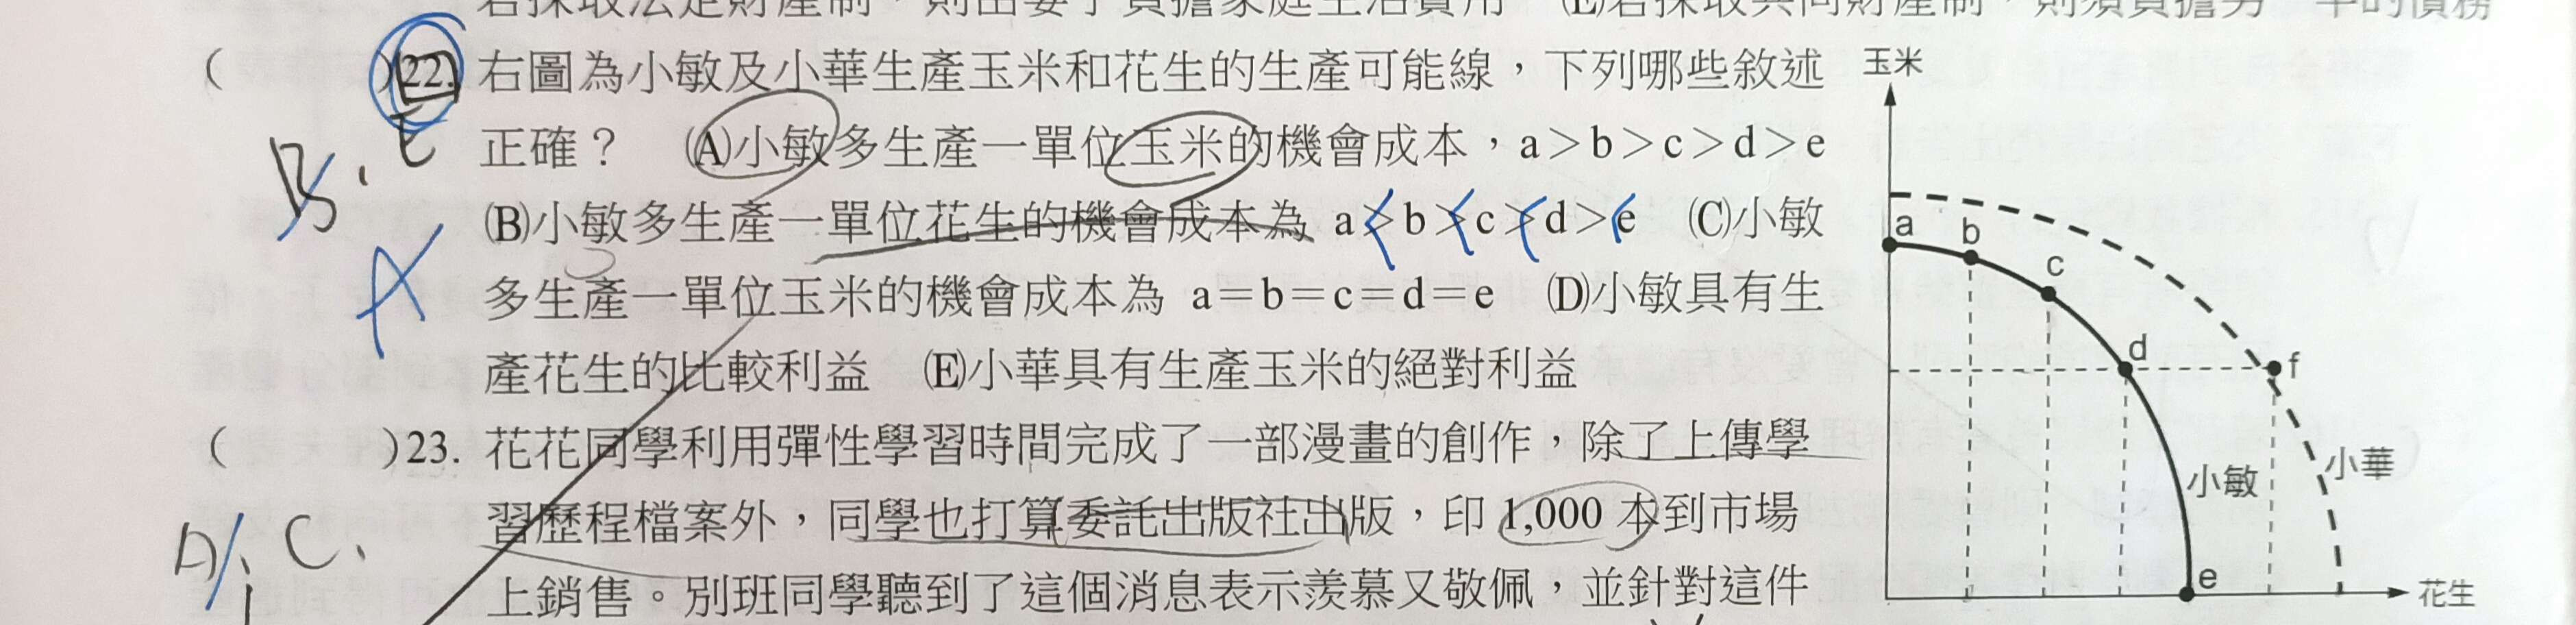 若採取法定財產制，則由妻子負擔家庭生活費用 (E)若採取共同財產制，則須負擔另一半的債務
( )22. 右圖為小敏及小華生產玉米和花生的生產可能線，下列哪些敘述
正確？ (A)小敏多生產一單位玉米的機會成本，a＞b＞c＞d＞e
(B)小敏多生產一單位花生的機會成本為 a＞b＞c＞d＞e (C)小敏
多生產一單位玉米的機會成本為 a＝b＝c＝d＝e (D)小敏具有生
產花生的比較利益 (E)小華具有生產玉米的絕對利益
B. E
A
< < < <
玉米
a
b
c
d
f
小敏
小華
e
花生
( )23. 花花同學利用彈性學習時間完成了一部漫畫的創作，除了上傳學
習歷程檔案外，同學也打算委託出版社出版，印 1,000 本到市場
上銷售。別班同學聽到了這個消息表示羨慕又敬佩，並針對這件
C.